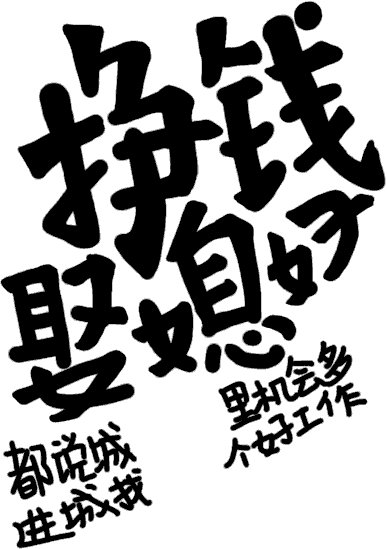 挣钱
娶媳好
都说城里机会多
进城找个好工作